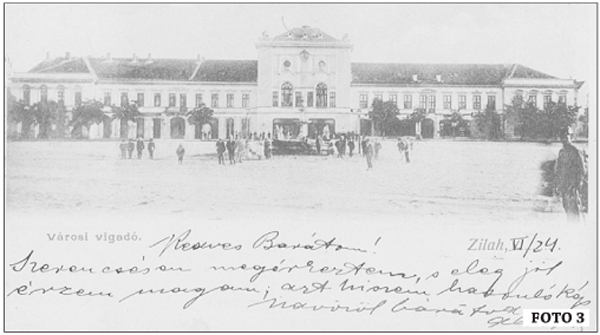 Városi vigadó.
Zilah, VI/24.
Kedves Barátom!
Szerencsésen megérkeztem, s elég jól
érzem magam; azt hiszem
barátod
FOTO 3